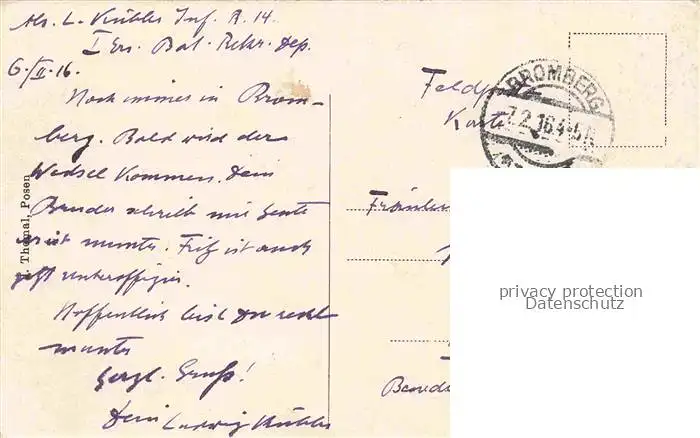 Abs. L. Kübler Inf. R. 14.
I Ers. Bat. Rekr. Dep.
6./II.16.
Noch immer in Brom-
berg. Bald wird der
Wechsel kommen. Dein
Bruder schrieb mir heute
er ist munter. Fritz ist auch
jetzt Unteroffizier.
Hoffentlich bist Du recht
munter
Herzl. Gruß!
Dein Ludwig Kübler
Thomal, Posen
Feldpost
Karte
BROMBERG
7.2.16.4-5
Fräulein
privacy protection
Datenschutz